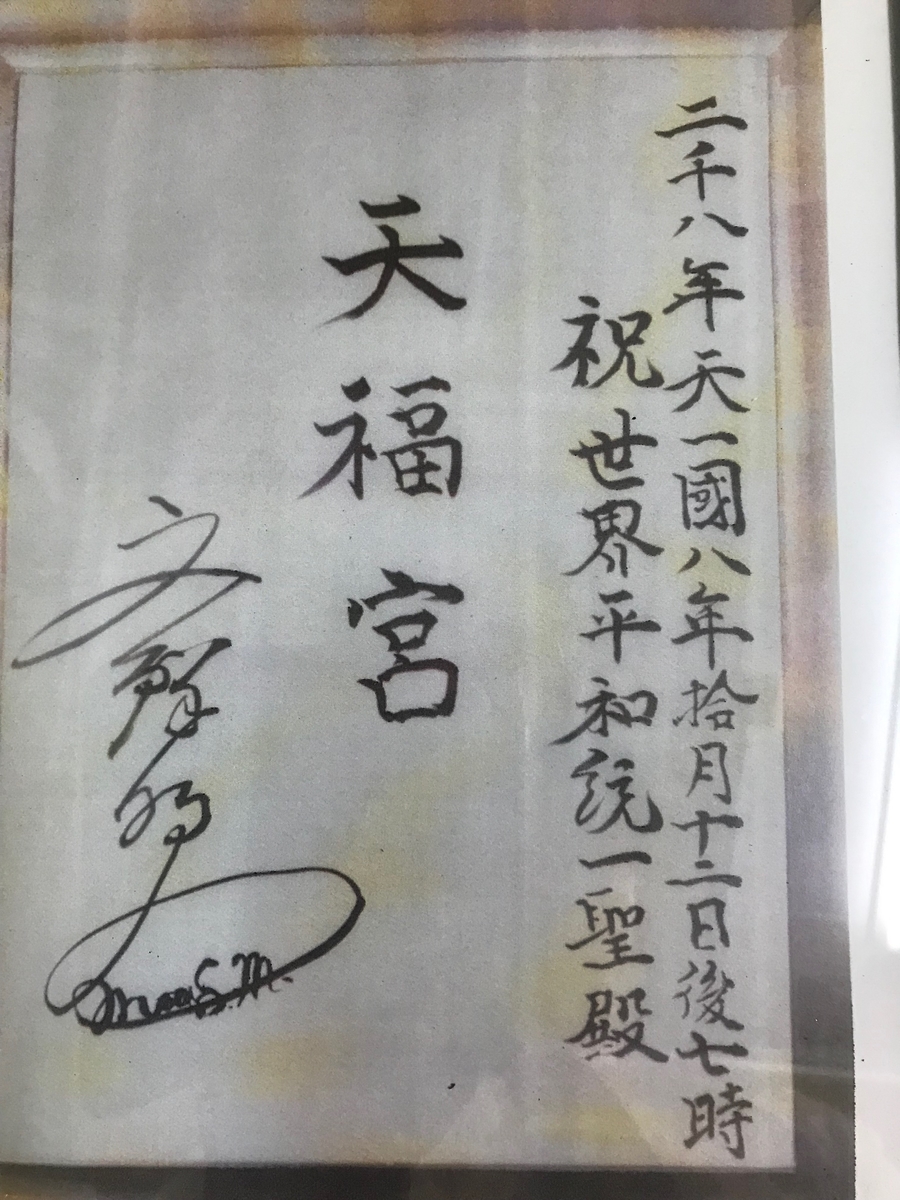 二千八年天一國八年拾月十二日後七時
祝世界平和統一聖殿
天福宮
文鮮明
moon S. M.